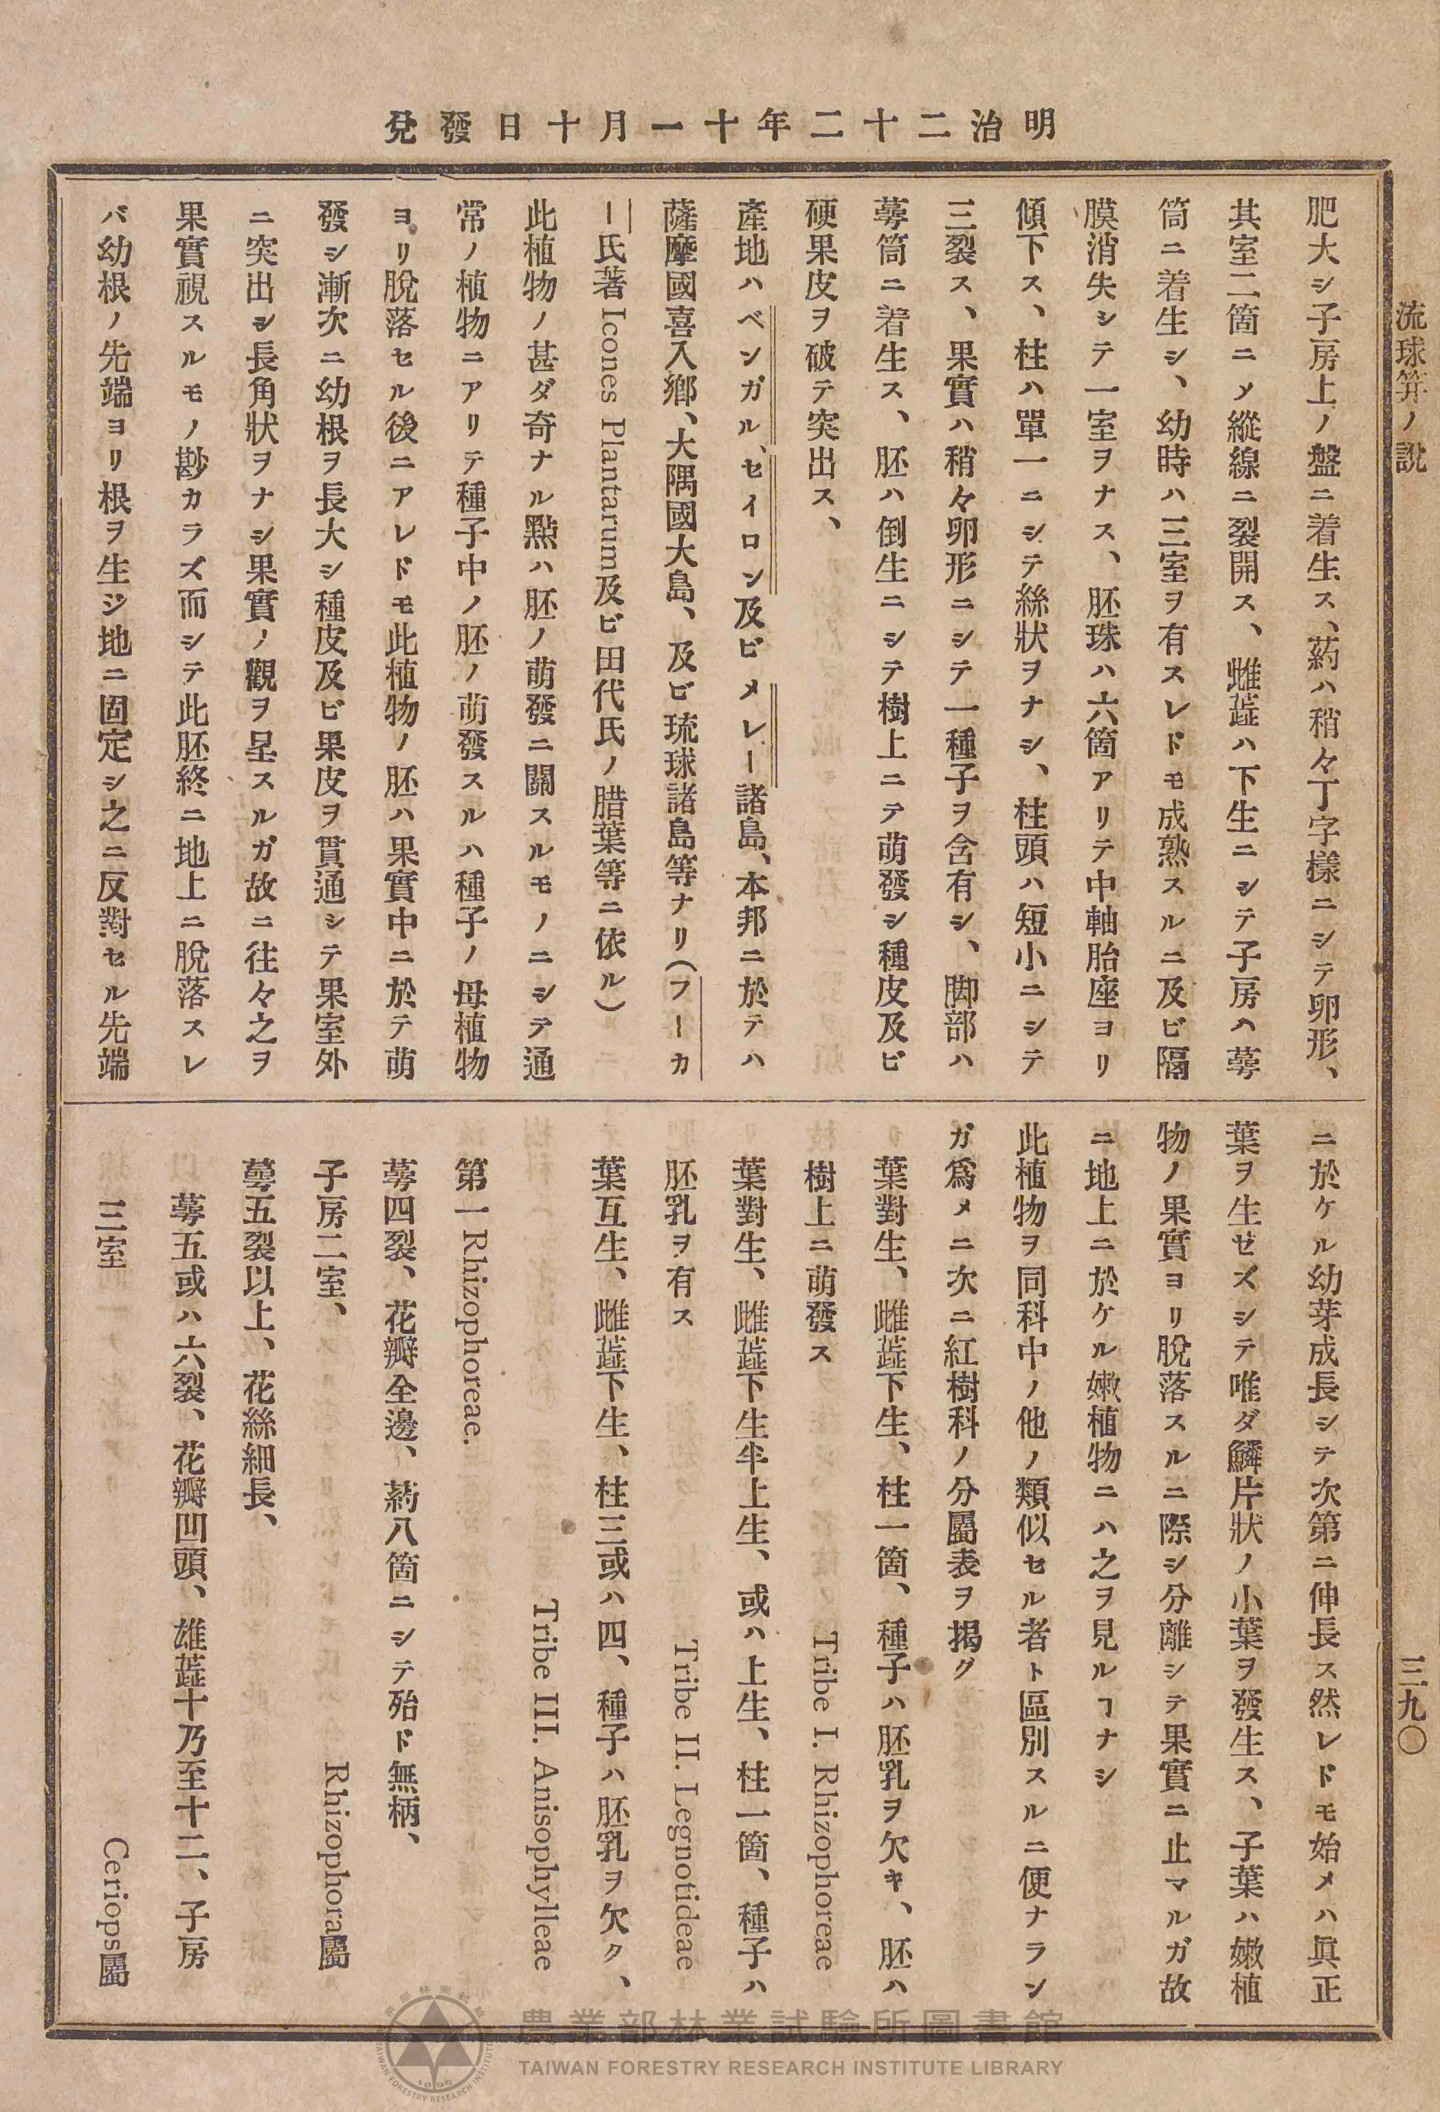 明治二十二年十一月十日發兌
流球笄ノ說
三九〇
肥大シ子房上ノ盤ニ着生ス、葯ハ稍々丁字樣ニシテ卵形、
其室二箇ニメ縱線ニ裂開ス、雌蕋ハ下生ニシテ子房ハ萼
筒ニ着生シ、幼時ハ三室ヲ有スレドモ成熟スルニ及ビ隔
膜消失シテ一室ヲナス、胚珠ハ六箇アリテ中軸胎座ヨリ
傾下ス、柱ハ單一ニシテ絲狀ヲナシ、柱頭ハ短小ニシテ
三裂ス、果實ハ稍々卵形ニシテ一種子ヲ含有シ、脚部ハ
萼筒ニ着生ス、胚ハ倒生ニシテ樹上ニテ萌發シ種皮及ビ
硬果皮ヲ破テ突出ス、
產地ハベンガル、セイロン及ビメレー諸島、本邦ニ於テハ
薩摩國喜入鄉、大隅國大島、及ビ琉球諸島等ナリ(フーカ
ー氏著 Icones Plantarum 及ビ田代氏ノ腊葉等ニ依ル)
此植物ノ甚ダ奇ナル點ハ胚ノ萌發ニ關スルモノニシテ通
常ノ植物ニアリテ種子中ノ胚ノ萌發スルハ種子ノ母植物
ヨリ脫落セル後ニアレドモ此植物ノ胚ハ果實中ニ於テ萌
發シ漸次ニ幼根ヲ長大シ種皮及ビ果皮ヲ貫通シテ果室外
ニ突出シ長角狀ヲナシ果實ノ觀ヲ呈スルガ故ニ往々之ヲ
果實視スルモノ尠カラズ而シテ此胚終ニ地上ニ脫落スレ
バ幼根ノ先端ヨリ根ヲ生ジ地ニ固定シ之ニ反對セル先端
ニ於ケル幼芽成長シテ次第ニ伸長ス然レドモ始メハ眞正
葉ヲ生ゼズシテ唯ダ鱗片狀ノ小葉ヲ發生ス、子葉ハ嫩植
物ノ果實ヨリ脫落スルニ際シ分離シテ果實ニ止マルガ故
ニ地上ニ於ケル嫩植物ニハ之ヲ見ルヿナシ
此植物ヲ同科中ノ他ノ類似セル者ト區別スルニ便ナラン
ガ爲メニ次ニ紅樹科ノ分屬表ヲ揭グ
葉對生、雌蕋下生、柱一箇、種子ハ胚乳ヲ欠キ、胚ハ
樹上ニ萌發ス Tribe I. Rhizophoreae
葉對生、雌蕋下生半上生、或ハ上生、柱一箇、種子ハ
胚乳ヲ有ス Tribe II. Legnotideae
葉互生、雌蕋下生、柱三或ハ四、種子ハ胚乳ヲ欠ク、
Tribe III. Anisophylleae
第一 Rhizophoreae.
萼四裂、花瓣全邊、葯八箇ニシテ殆ド無柄、
子房二室、 Rhizophora屬
萼五裂以上、花絲細長、
萼五或ハ六裂、花瓣凹頭、雄蕋十乃至十二、子房
三室 Ceriops屬
農業部林業試驗所圖書館
TAIWAN FORESTRY RESEARCH INSTITUTE LIBRARY
農業部林業試驗所
TAIWAN FORESTRY RESEARCH INSTITUTE
1896